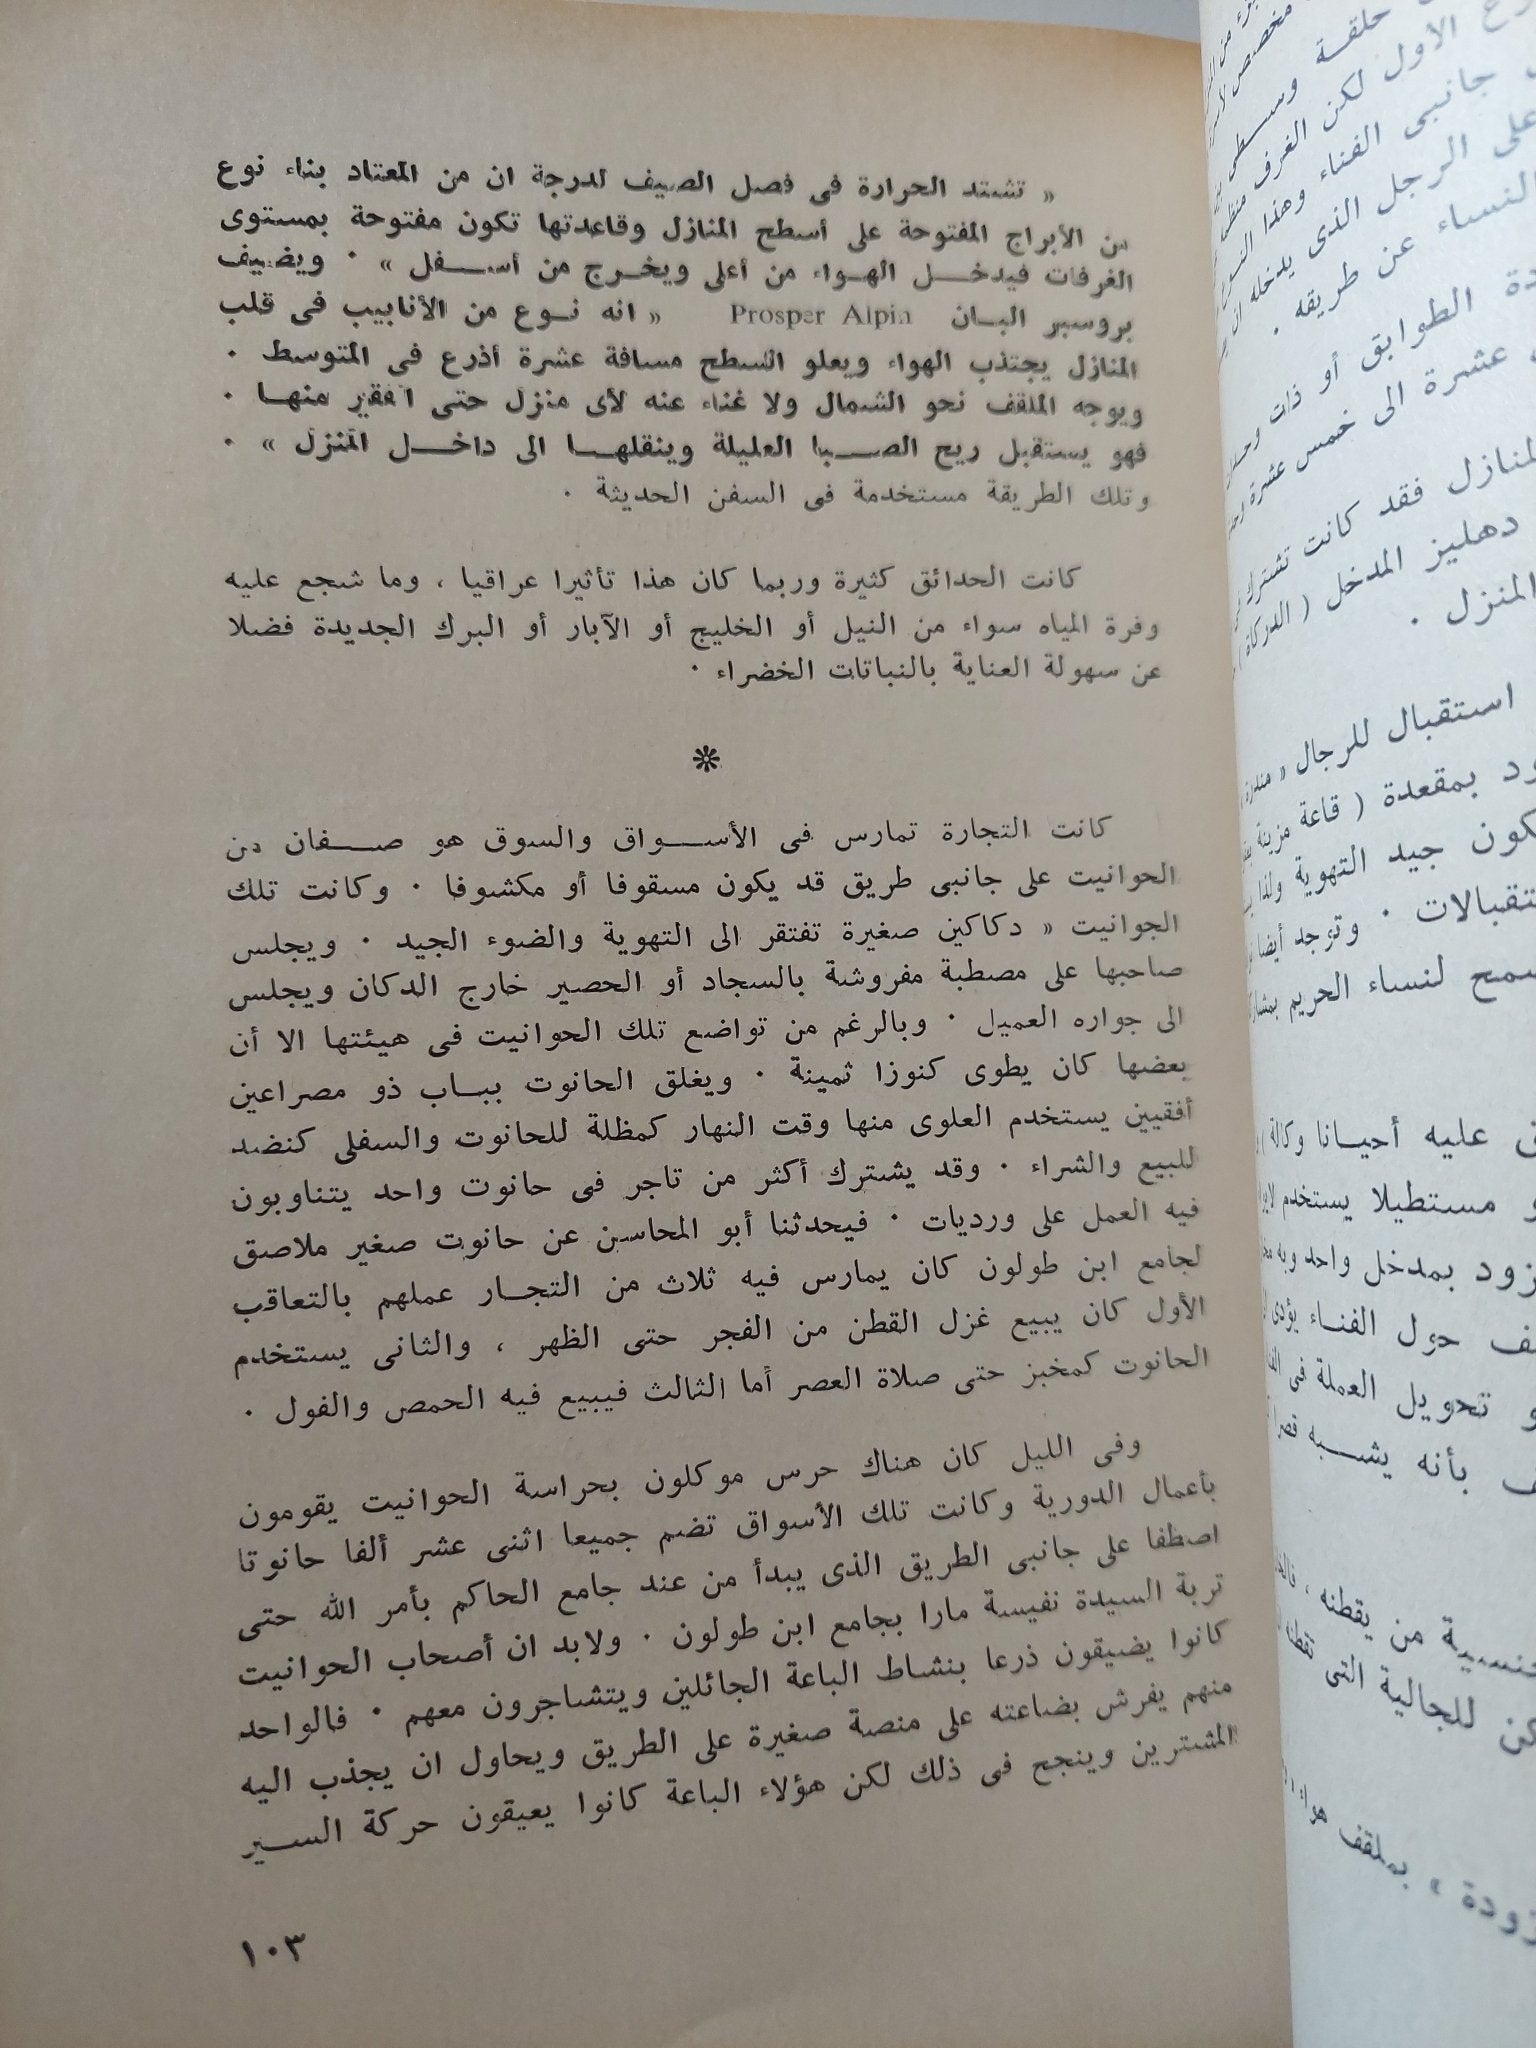 « تشتد الحرارة فى فصل الصيف لدرجة ان من المعتاد بناء نوع
من الأبراج المفتوحة على أسطح المنازل وقاعدتها تكون مفتوحة بمستوى
الغرفات فيدخل الهواء من أعلى ويخرج من أسفل » . ويضيف
بروسبر البان Prosper Alpin « انه نوع من الأنابيب فى قلب
المنازل يجتذب الهواء ويعلو السطح مسافة عشرة أذرع فى المتوسط .
ويوجه الملقف نحو الشمال ولا غناء عنه لأى منزل حتى الفقير منها .
فهو يستقبل ريح الصبا العليلة وينقلها الى داخل المنزل » .
وتلك الطريقة مستخدمة فى السفن الحديثة .
كانت الحدائق كثيرة وربما كان هذا تأثيرا عراقيا ، وما شجع عليه
وفرة المياه سواء من النيل أو الخليج أو الآبار أو البرك الجديدة فضلا
عن سهولة العناية بالنباتات الخضراء .
كانت التجارة تمارس فى الأسواق والسوق هو صفان من
الحوانيت على جانبى طريق قد يكون مسقوفا أو مكشوفا . وكانت تلك
الجوانيت « دكاكين صغيرة تفتقر الى التهوية والضوء الجيد . ويجلس
صاحبها على مصطبة مفروشة بالسجاد أو الحصير خارج الدكان ويجلس
الى جواره العميل . وبالرغم من تواضع تلك الحوانيت فى هيئتها الا أن
بعضها كان يطوى كنوزا ثمينة . ويغلق الحانوت بباب ذو مصراعين
أفقيين يستخدم العلوى منها وقت النهار كمظلة للحانوت والسفلى كنضد
للبيع والشراء . وقد يشترك أكثر من تاجر فى حانوت واحد يتناوبون
فيه العمل على ورديات . فيحدثنا أبو المحاسن عن حانوت صغير ملاصق
لجامع ابن طولون كان يمارس فيه ثلاث من التجار عملهم بالتعاقب
الأول كان يبيع غزل القطن من الفجر حتى الظهر ، والثانى يستخدم
الحانوت كمخبز حتى صلاة العصر أما الثالث فيبيع فيه الحمص والفول .
وفى الليل كان هناك حرس موكلون بحراسة الحوانيت يقومون
بأعمال الدورية وكانت تلك الأسواق تضم جميعا اثنى عشر ألفا حانوتا
اصطفا على جانبى الطريق الذى يبدأ من عند جامع الحاكم بأمر الله حتى
تربة السيدة نفيسة مارا بجامع ابن طولون . ولابد ان أصحاب الحوانيت
كانوا يضيقون ذرعا بنشاط الباعة الجائلين ويتشاجرون معهم . فالواحد
منهم يفرش بضاعته على منصة صغيرة على الطريق ويحاول ان يجذب اليه
المشترين وينجح فى ذلك لكن هؤلاء الباعة كانوا يعيقون حركة السير
١٠٣
حلقة وسطى
الأول لكن الغرف
جانبى الفناء وهذا
على الرجل الذى يدخله
النساء عن طريقه .
الطوابق أو ذات
عشرة الى خمس عشرة
المنازل فقد كانت تشترك
دهليز المدخل ( الدركاة )
المنزل .
استقبال للرجال « مندرة
بمقعدة ( قاعة مزينة
جيد التهوية ولذا
. وتوجد أيضا
لنساء الحريم
عليه أحيانا وكالة
مستطيلا يستخدم
بمدخل واحد وبه
حول الفناء يؤدى
تحويل العملة فى
بأنه يشبه
من يقطنه ،
للجالية التى
« بملقف هواء